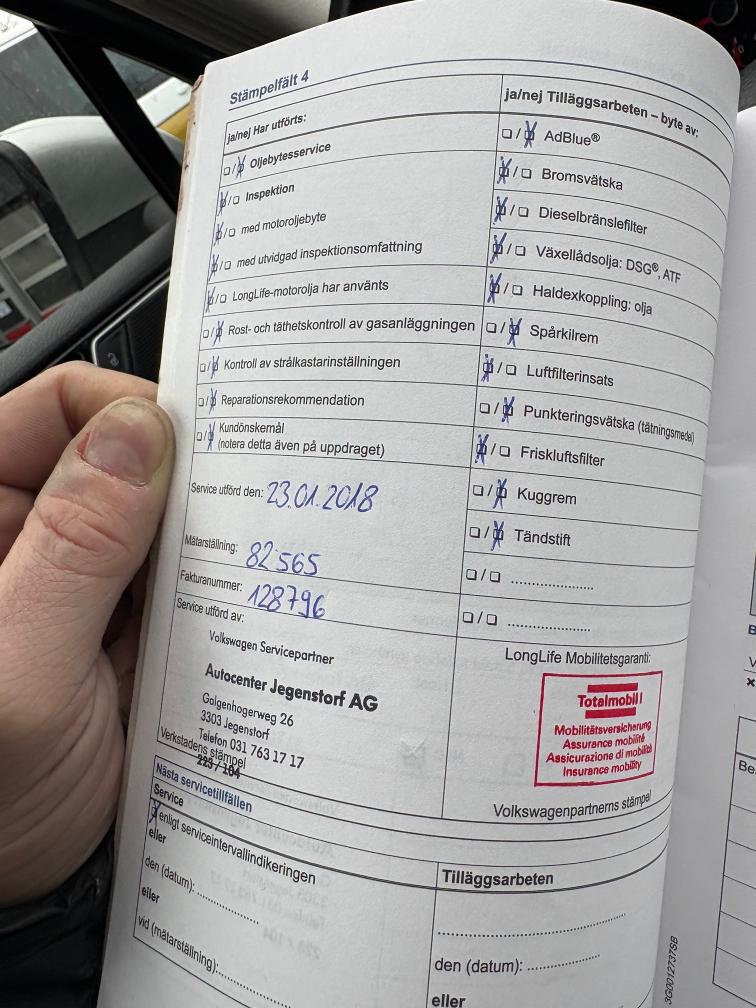 Stämpelfält 4
ja/nej Har utförts:
❏/❏ Oljebytesservice
❏/❏ Inspektion
❏/❏ med motoroljebyte
❏/❏ med utvidgad inspektionsomfattning
❏/❏ LongLife-motorolja har använts
❏/❏ Rost- och täthetskontroll av gasanläggningen
❏/❏ Kontroll av strålkastarinställningen
❏/❏ Reparationsrekommendation
❏/❏ Kundönskemål
(notera detta även på uppdraget)
Service utförd den: 23.01.2018
Mätarställning: 82'565
Fakturanummer: 128796
Service utförd av:
Volkswagen Servicepartner
Autocenter Jegenstorf AG
Galgenhogerweg 26
3303 Jegenstorf
Telefon 031 763 17 17
Verkstadens stämpel
223 / 104
ja/nej Tilläggsarbeten – byte av:
❏/❏ AdBlue®
❏/❏ Bromsvätska
❏/❏ Dieselbränslefilter
❏/❏ Växellådsolja: DSG®, ATF
❏/❏ Haldexkoppling: olja
❏/❏ Spårkilrem
❏/❏ Luftfilterinsats
❏/❏ Punkteringsvätska (tätningsmedel)
❏/❏ Friskluftsfilter
❏/❏ Kuggrem
❏/❏ Tändstift
❏/❏ ....................
❏/❏ ....................
LongLife Mobilitetsgaranti:
Totalmobil!
Mobilitätsversicherung
Assurance mobilité
Assicurazione di mobilità
Insurance mobility
Volkswagenpartnerns stämpel
Nästa servicetillfällen
Service
enligt serviceintervallindikeringen
eller
den (datum): ...............
eller
vid (mätarställning):...............
Tilläggsarbeten
........................................
den (datum): ...............
eller
3G0012737SB
Be